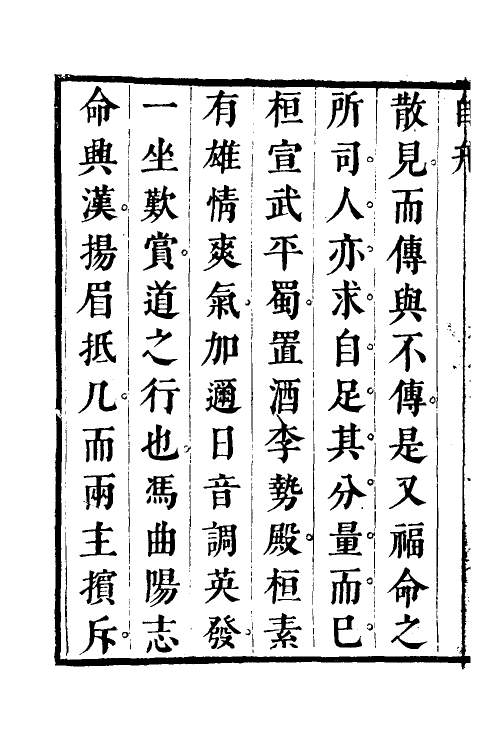 散見而傳與不傳是又福命之
所司人亦求自足其分量而已
桓宣武平蜀置酒李勢殿桓素
有雄情爽氣加邇日音調英發
一坐歎賞道之行也馮曲陽志
命典漢揚眉抵几而兩主擯斥